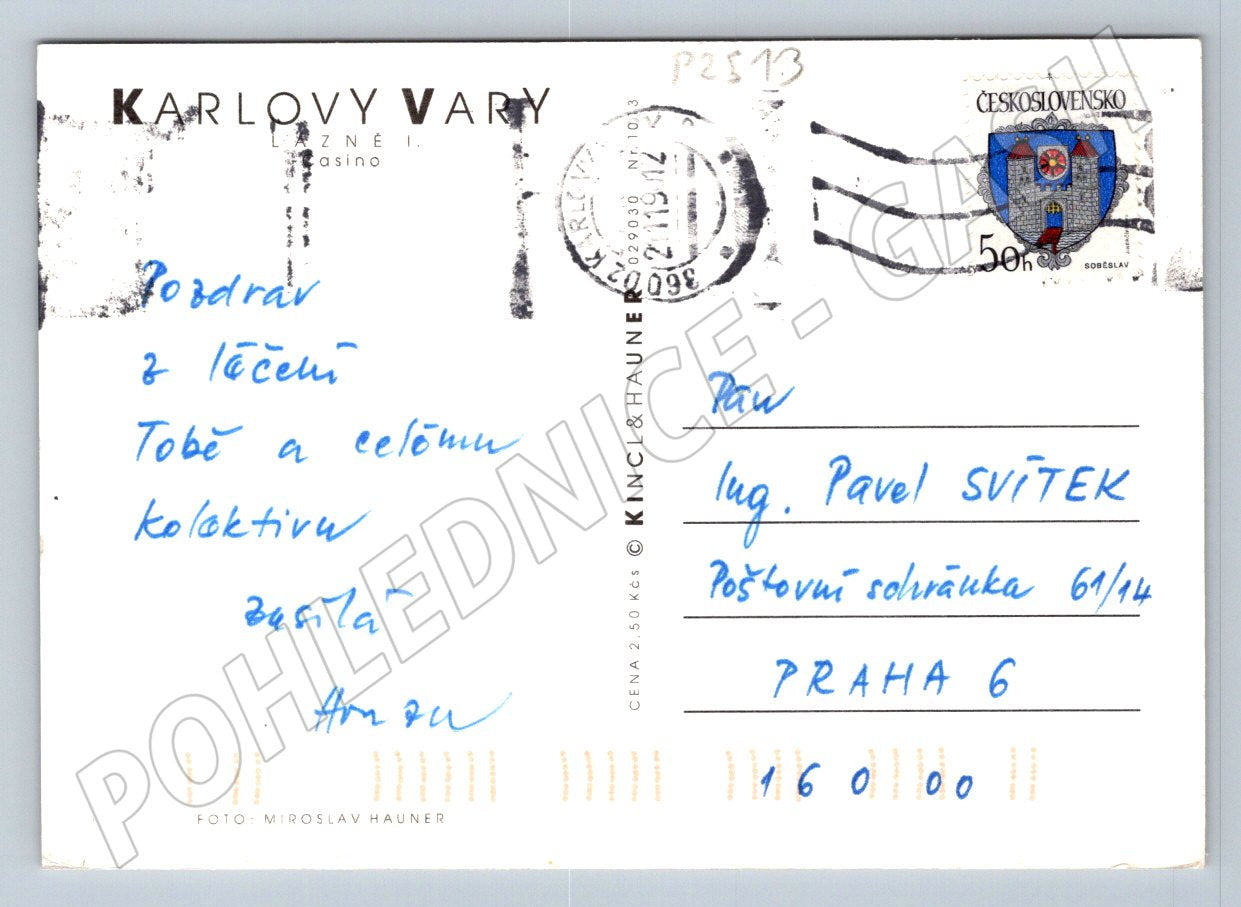 P2513
KARLOVY VARY
LÁZNĚ I.
Casino
Pozdrav
z léčení
Tobě a celému
kolektivu
zasílá
Honza
FOTO: MIROSLAV HAUNER
CENA 2.50 Kčs © KINCL & HAUNER 029030 Nr. 1013
36002 KARLOVY VARY 2
ČESKOSLOVENSKO
50h
SOBĚSLAV
Pan
Ing. Pavel SVÍTEK
Poštovní schránka 61/14
PRAHA 6
160 00
POHLEDNICE - GASH